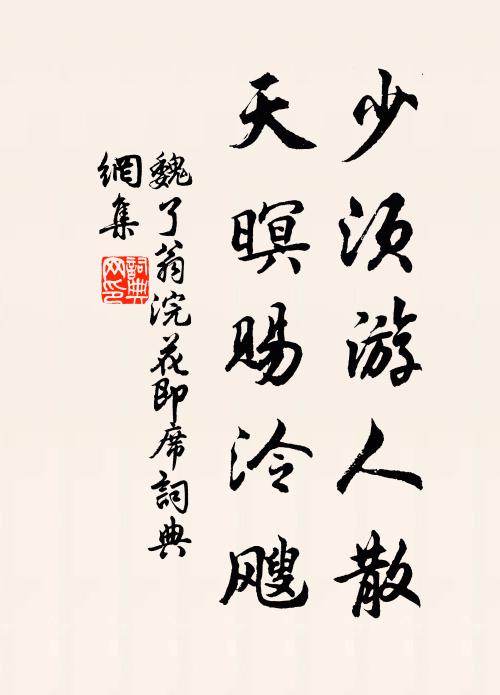 少须游人散
天暝赐泠飕
魏了翁浣花即席詞典
網集
詞典
网印